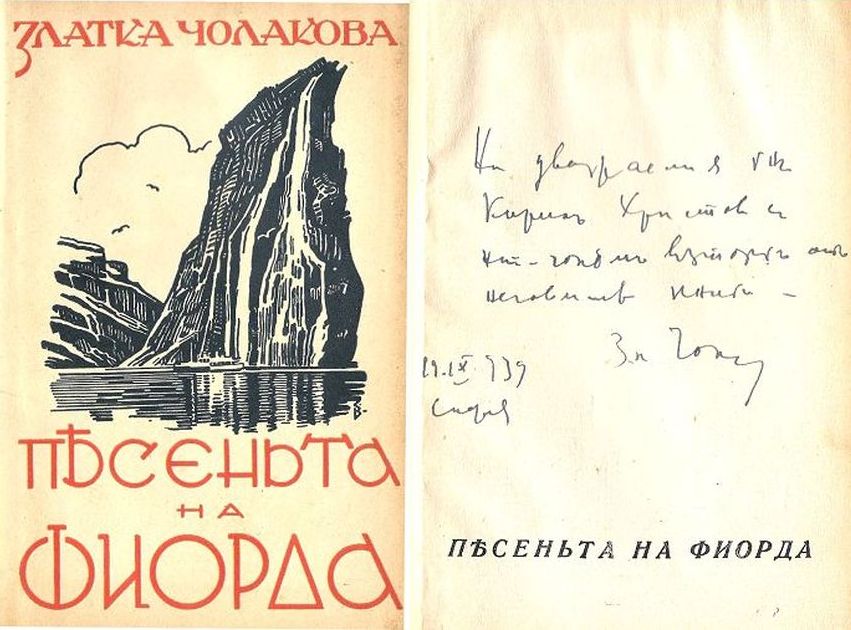 ЗЛАТКА ЧОЛАКОВА
ПѢСЕНЬТА
НА
ФИОРДА
На уважаемия г-нъ
Кирилъ Христовъ с
най-голѣмъ възторгъ отъ
неговитѣ книги –
Зл. Чол
19.IX 939
София
ПѢСЕНЬТА НА ФИОРДА